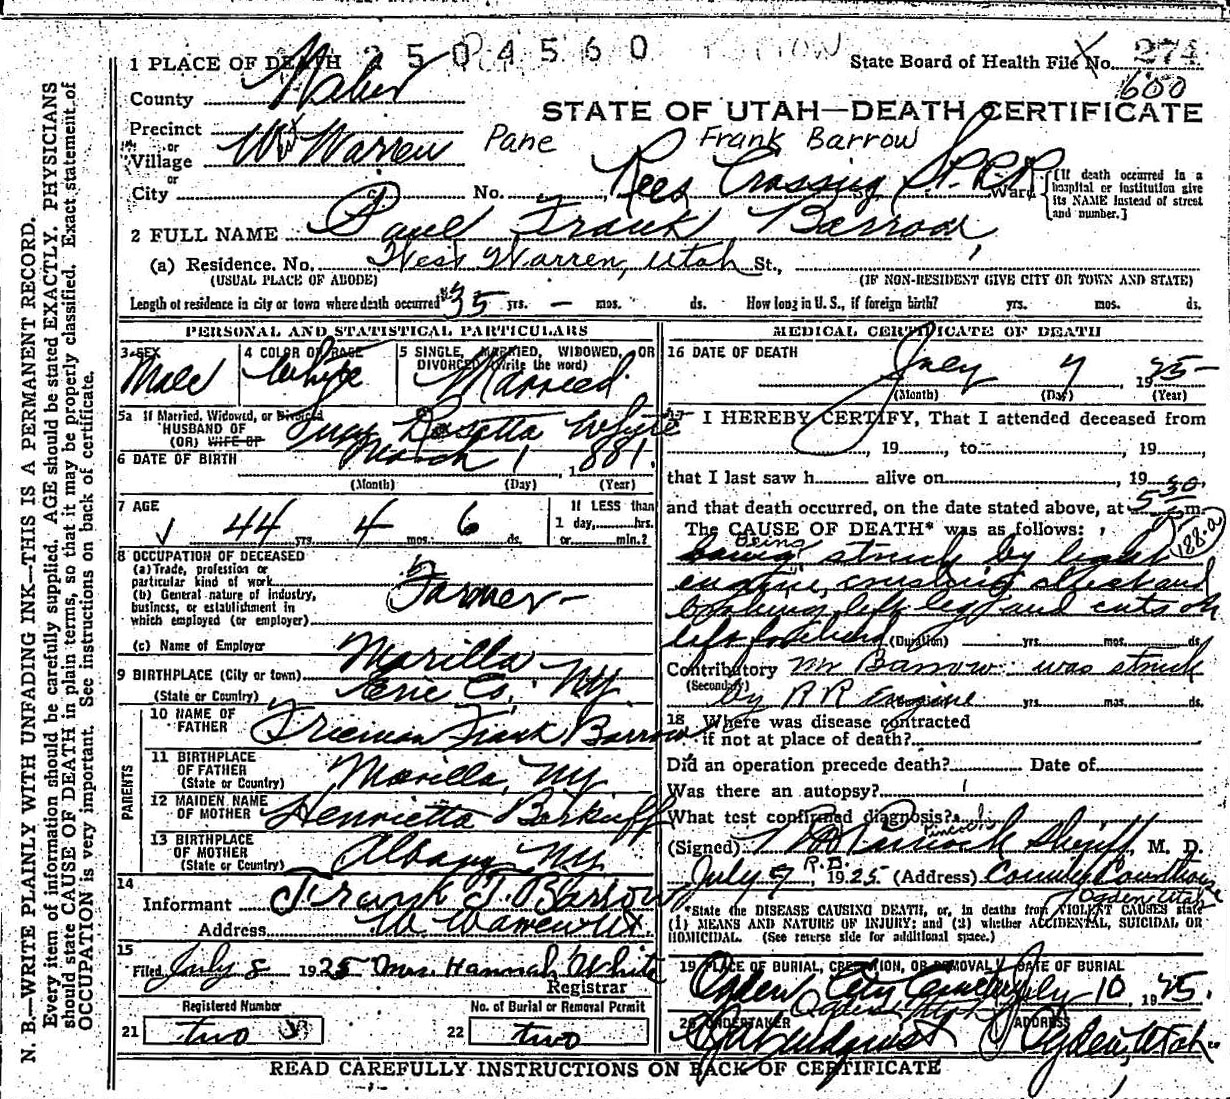 2504560
State Board of Health File No. 274
600
1 PLACE OF DEATH
County Weber
STATE OF UTAH—DEATH CERTIFICATE
Precinct
or
Village W. Warren
Pane Frank Barrow
or
City No. Rees Crossing S.P.R.R. Ward
[If death occurred in a hospital or institution give its NAME instead of street and number.]
2 FULL NAME Paul Frank Barrow
(a) Residence. No. West Warren, Utah St.,
(USUAL PLACE OF ABODE) (IF NON-RESIDENT GIVE CITY OR TOWN AND STATE)
Length of residence in city or town where death occurred 35 yrs. — mos. ds. How long in U. S., if foreign birth? yrs. mos. ds.
PERSONAL AND STATISTICAL PARTICULARS
3 SEX
Male
4 COLOR OR RACE
White
5 SINGLE, MARRIED, WIDOWED, OR DIVORCED (Write the word)
Married
5a If Married, Widowed, or Divorced
HUSBAND OF
(OR) WIFE OF
Rosetta White
6 DATE OF BIRTH March 1 1881.
(Month) (Day) (Year)
7 AGE
44 yrs. 4 mos. 6 ds.
If LESS than
1 day, hrs.
or min.?
8 OCCUPATION OF DECEASED
(a) Trade, profession or
particular kind of work
(b) General nature of industry,
business, or establishment in
which employed (or employer)
Farmer—
(c) Name of Employer
9 BIRTHPLACE (City or town) Marilla
(State or Country) Erie Co. NY.
PARENTS
10 NAME OF
FATHER Frank Barrow
11 BIRTHPLACE
OF FATHER
(State or Country) Marilla, NY
12 MAIDEN NAME
OF MOTHER Henrietta
13 BIRTHPLACE
OF MOTHER
(State or Country) Albany NY.
14
Informant Frank J. Barrow
Address W. Warren Ut.
15
Filed July 8 1925 Mrs. Hannah White
Registrar
Registered Number
21 two
No. of Burial or Removal Permit
22 two
MEDICAL CERTIFICATE OF DEATH
16 DATE OF DEATH
July 7, 1925
(Month) (Day) (Year)
17 I HEREBY CERTIFY, That I attended deceased from
, 19 , to , 19 ,
that I last saw h alive on , 19 ,
and that death occurred, on the date stated above, at 5-30 m.
The CAUSE OF DEATH* was as follows:
188-a
being struck by light
engine, crushing chest and
breaking left leg and cuts on
left forehead (Duration) yrs. mos. ds.
Contributory Mr Barrow was struck
(Secondary) by RR Engine yrs. mos. ds.
18 Where was disease contracted
if not at place of death?
Did an operation precede death? Date of
Was there an autopsy?
What test confirmed diagnosis?
(Signed) Pincock Sheriff, M. D.
July 9, 1925 (Address) County Courthouse
R.D.
Ogden Utah
*State the DISEASE CAUSING DEATH, or, in deaths from VIOLENT CAUSES state
(1) MEANS AND NATURE OF INJURY; and (2) whether ACCIDENTAL, SUICIDAL OR
HOMICIDAL. (See reverse side for additional space.)
19 PLACE OF BURIAL, CREMATION, OR REMOVAL
Ogden City Cemetery
DATE OF BURIAL
July 10, 1925.
20 UNDERTAKER
Lindquist
ADDRESS
Ogden, Utah
READ CAREFULLY INSTRUCTIONS ON BACK OF CERTIFICATE
N. B.—WRITE PLAINLY WITH UNFADING INK—THIS IS A PERMANENT RECORD.
Every item of information should be carefully supplied. AGE should be stated EXACTLY. PHYSICIANS
should state CAUSE OF DEATH in plain terms, so that it may be properly classified. Exact statement of
OCCUPATION is very important. See instructions on back of certificate.